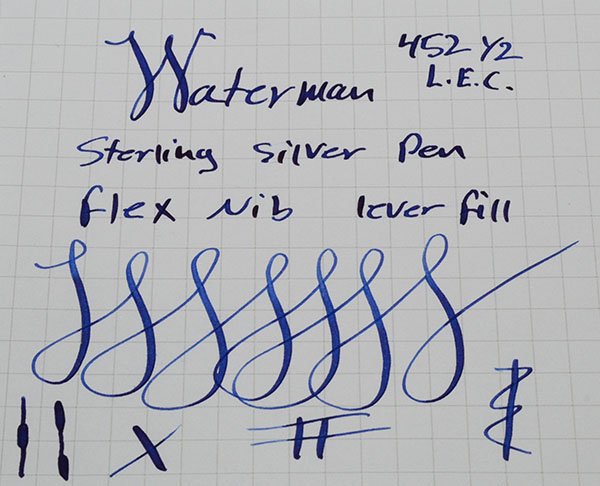 Waterman 452 1/2
L.E.C.
Sterling Silver Pen
Flex Nib lever fill